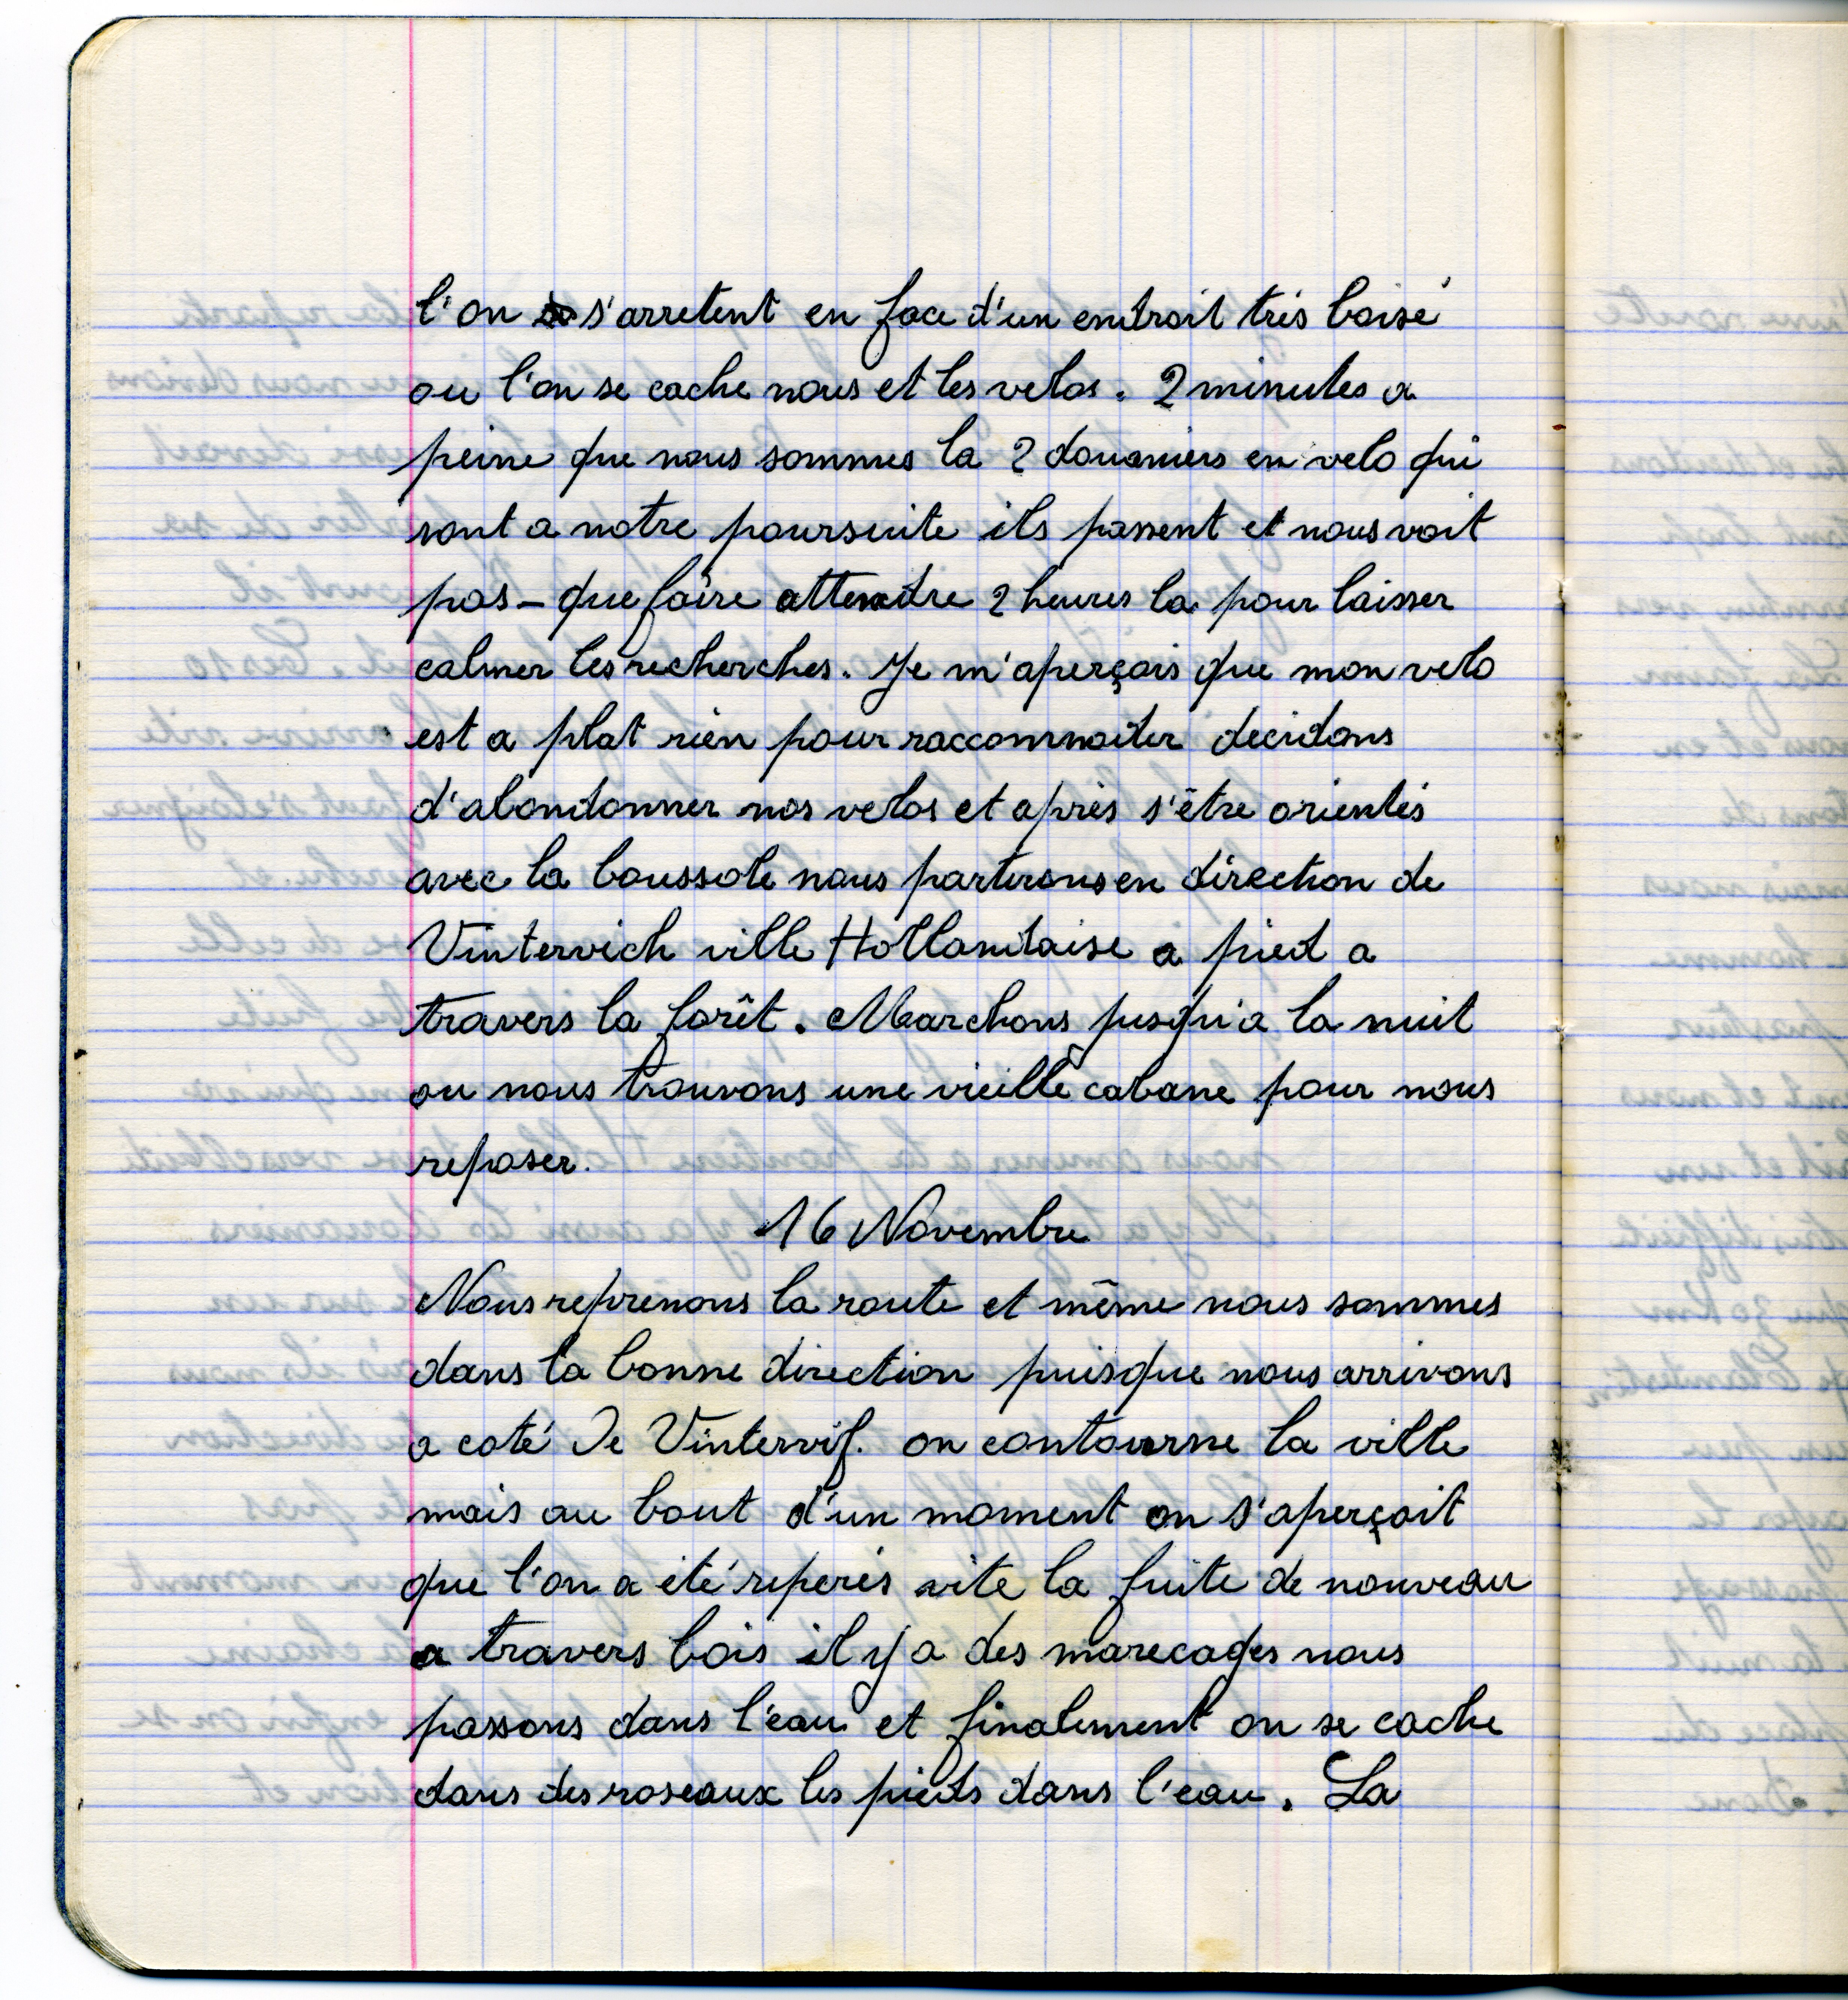 l'on s'arretent en face d'un endroit très boisé
ou l'on se cache nous et les velos. 2 minutes a
peine que nous sommes la 2 douaniers en velo qui
sont a notre poursuite ils passent et nous voit
pas - que faire attendre 2 heures la pour laisser
calmer les recherches. Je m'aperçois que mon velo
est a plat rien pour raccommoder decidons
d'abandonner nos velos et après s'être orientés
avec la boussole nous partirons en direction de
Vintervich ville Hollandaise a pied a
travers la forêt. Marchons jusqu'a la nuit
ou nous trouvons une vieille cabane pour nous
reposer.
16 Novembre
Nous reprenons la route et même nous sommes
dans la bonne direction puisque nous arrivons
a coté de Vintervif. on contourne la ville
mais au bout d'un moment on s'aperçoit
que l'on a été reperés vite la fuite de nouveau
a travers bois il y a des marecages nous
passons dans l'eau et finalement on se cache
dans des roseaux les pieds dans l'eau. La